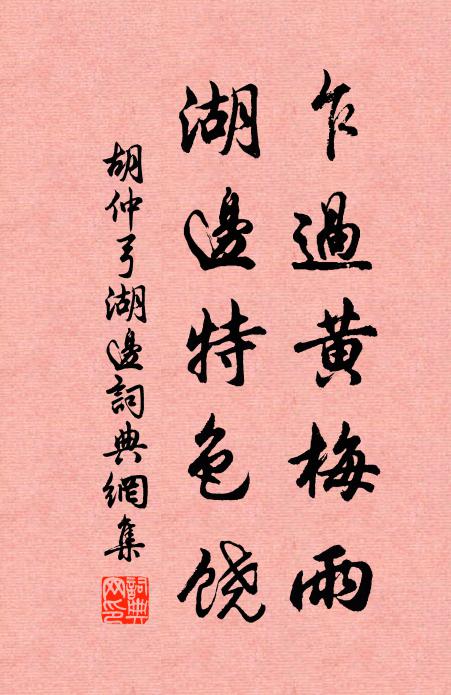 乍過黃梅雨
湖邊特色饶
胡仲弓湖邊詞典網集
詞典网印